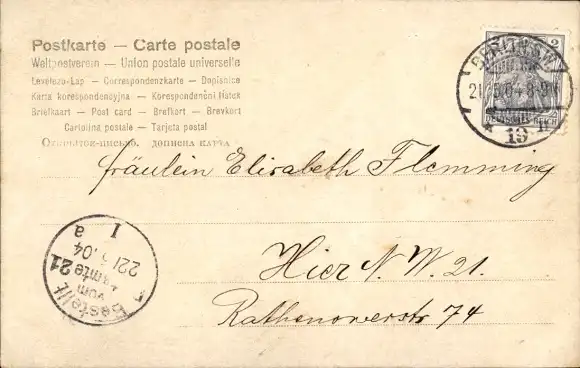 Postkarte — Carte postale
Weltpostverein — Union postale universelle
Levelezo-Lap — Correspondenzkarte — Dopisnice
Karta korespondencyjna — Korespondenční lístek
Briefkaart — Post card — Brefkort — Brevkort
Cartolina postale — Tarjeta postal
Открытое письмо. дописна карта
2
BERLIN S.W.
04 8-9
DEUTSCHES REICH
* 19
fräulein Elisabeth Flemming
Hier N. W. 21.
Rathenowerstr 74
Bestellt
vom
amte 21
22 .04
I a